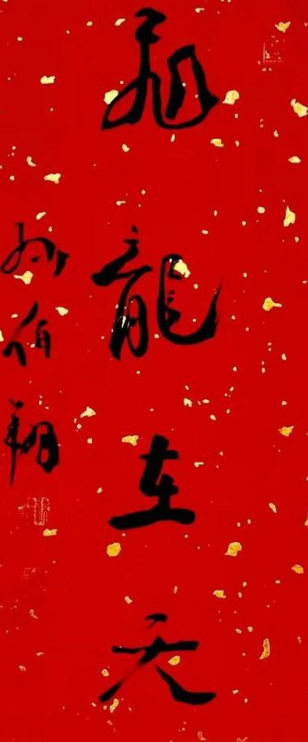 飛龍在天
孙伯翔